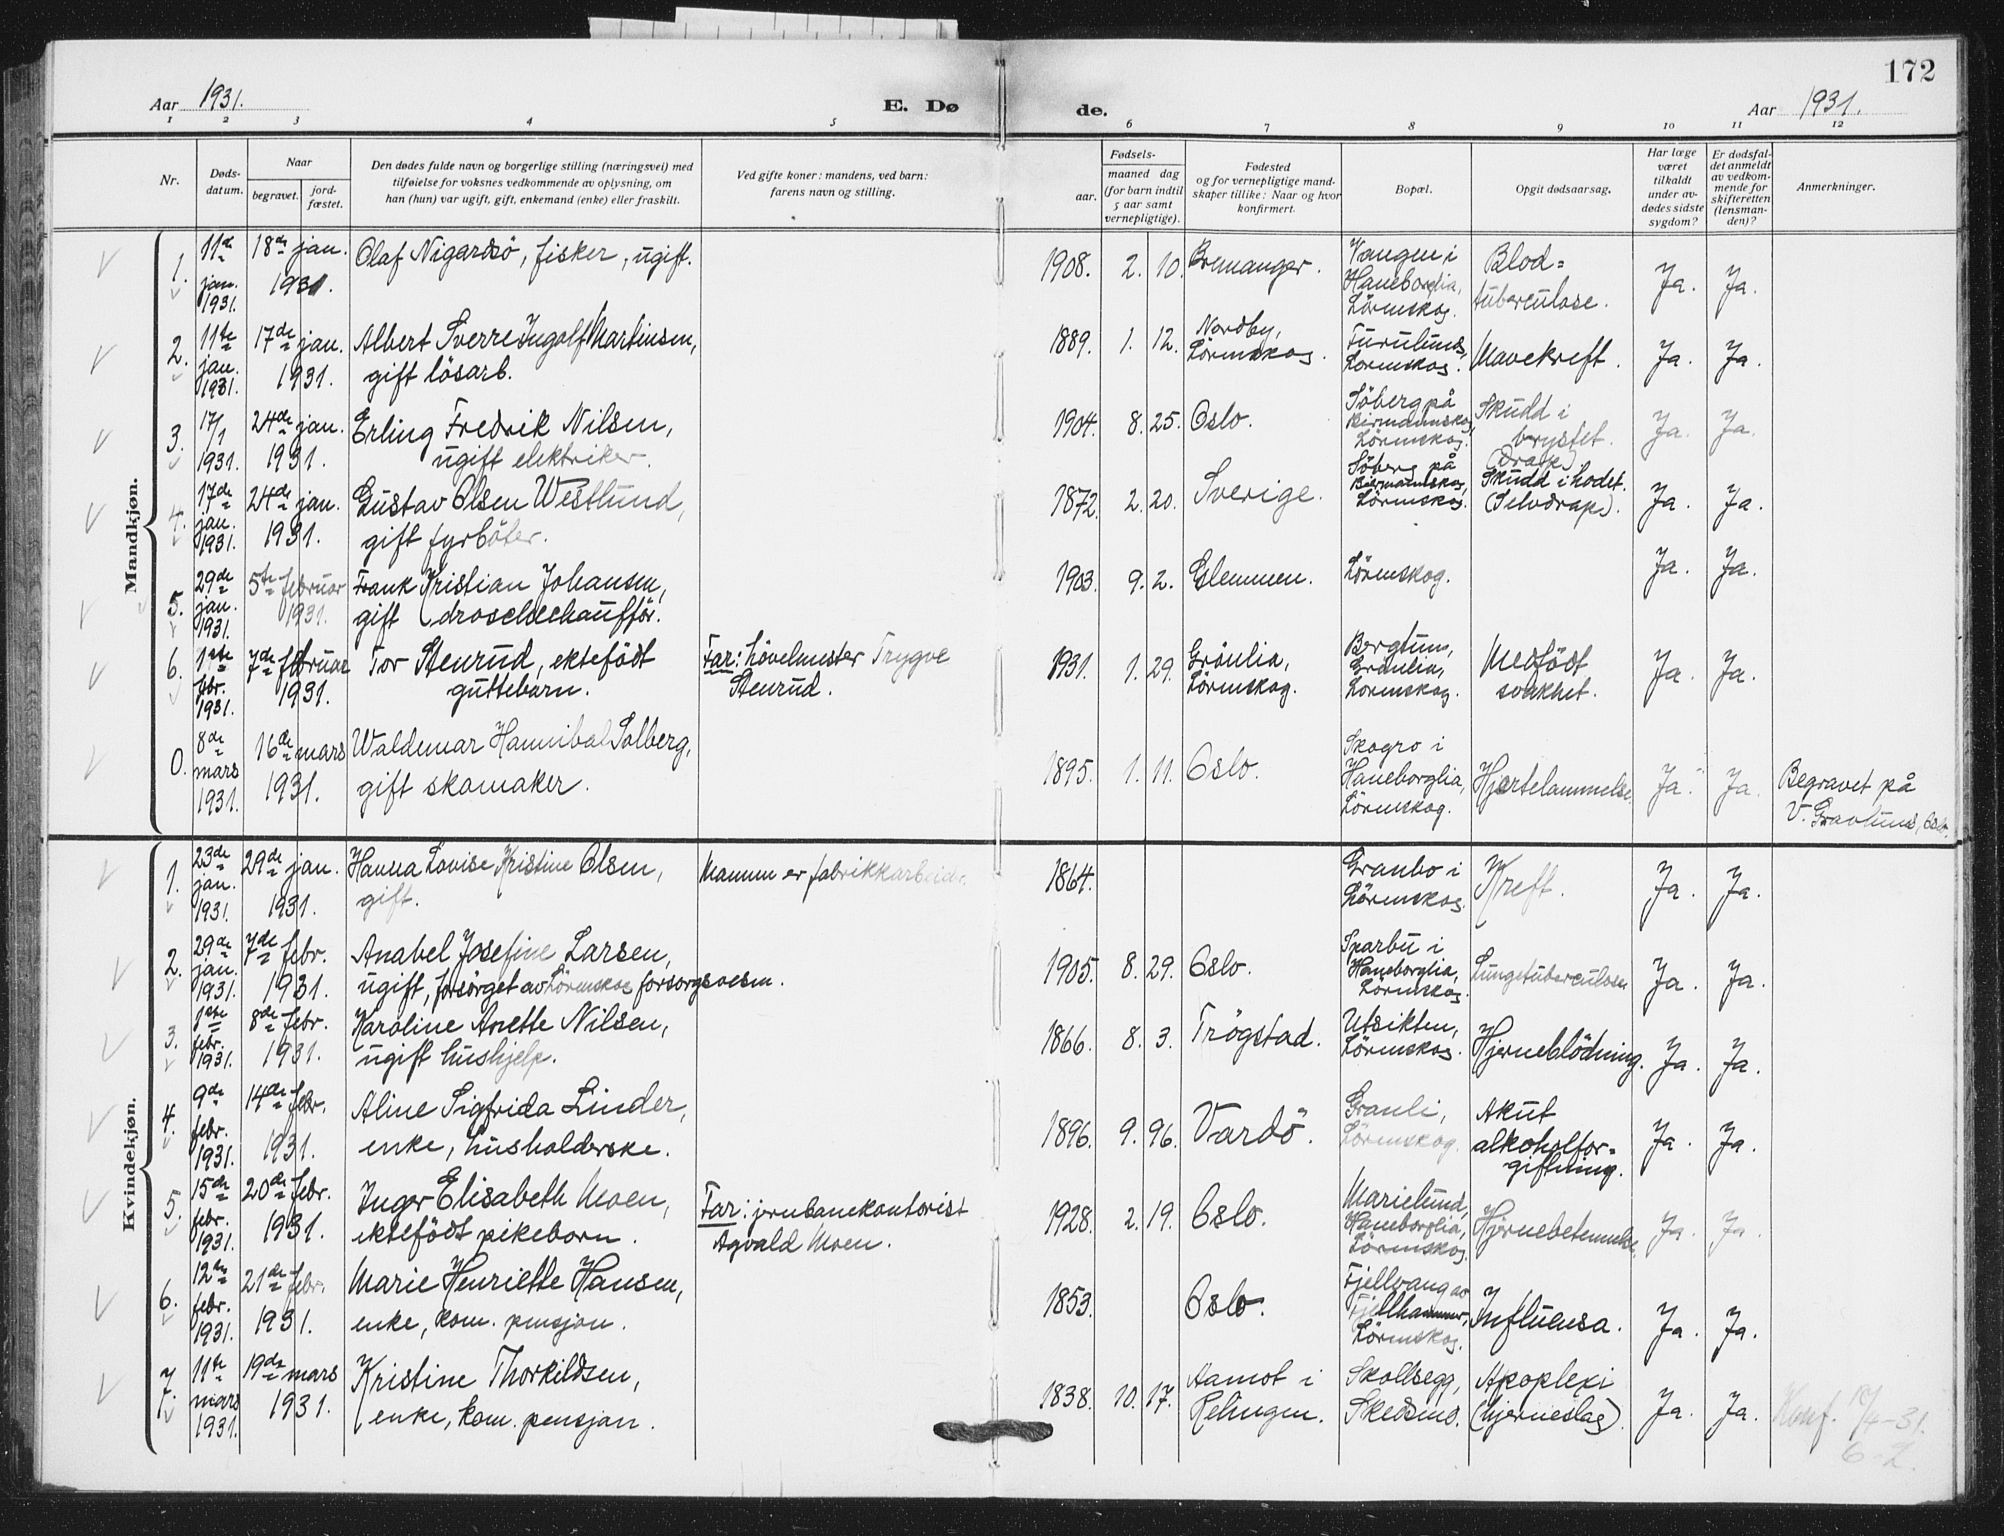 172
Aar 1931.
E. Dø
de.
Aar 1931.
1 2 3 4 5 6 7 8 9 10 11 12
Nr.
Døds-
datum.
Naar
begravet.
jord-
fæstet.
Den dødes fulde navn og borgerlige stilling (næringsvei) med
tilføielse for voksnes vedkommende av oplysning, om
han (hun) var ugift, gift, enkemand (enke) eller fraskilt.
Ved gifte koner: mandens, ved barn:
farens navn og stilling.
Fødsels-
aar.
maaned dag
(for barn indtil
5 aar samt
vernepligtige).
Fødested
og for vernepligtige mand-
skaper tillike: Naar og hvor
konfirmert.
Bopæl.
Opgit dødsaarsag.
Har læge
været
tilkaldt
under av-
dødes sidste
sygdom?
Er dødsfal-
det anmeldt
av vedkom-
mende for
skifteretten
(lensman-
den)?
Anmerkninger.
Mandkjøn.
1. 11te jan. 1931. 18de jan. 1931. Olaf Nigardsö, fisker, ugift. 1908. 2. 10. Bremanger. Vangen i Haneborglia, Lörenskog. Blod=tuberculose. Ja. Ja.
2. 11te jan. 1931. 17de jan. 1931. Albert Sverre Ingolf Martinsen, gift lösarb. 1889. 1. 12. Nordby, Lörenskog. Furulund, Lörenskog. Mavekreft. Ja. Ja.
3. 17/1 1931. 24de jan. 1931. Erling Fredrik Nilsen, ugift elektriker. 1904. 8. 25. Oslo. Söberg på Lörenskog. Skudd i brystet. (Drap) Ja. Ja.
4. 17de jan. 1931. 24de jan. 1931. Gustav Olsen Westlund, gift fyrböter. 1872. 2. 20. Sverige. Söberg på Lörenskog. Skudd i hodet. (Selvdrap). Ja. Ja.
5. 29de jan. 1931. 5te februar 1931. Frank Kristian Johansen, gift droschechaufför. 1903. 9. 2. Glemmen. Lörenskog. Ja. Ja.
6. 1ste febr. 1931. 7de februar 1931. Tor Stenrud, ektefödt guttebarn. Far: hövelmester Trygve Stenrud. 1931. 1. 29. Grönlia, Lörenskog. Bergtun, Grönlia, Lörenskog. Medfödt svakhet. Ja. Ja.
0. 8de mars 1931. 16de mars 1931. Waldemar Hannibal Solberg, gift skomaker. 1895. 1. 11. Oslo. Skogro i Haneborglia, Lörenskog. Hjertelammelse. Ja. Ja. Begravet på V. Gravlund, Oslo.
Kvindekjøn.
1. 23de jan. 1931. 29de jan. 1931. Hanna Lovise Kristine Olsen, gift. Mannen er fabrikkarbeider. 1864. Granbo i Lörenskog. Kreft. Ja. Ja.
2. 29de jan. 1931. 7de febr. 1931. Anabel Josefine Larsen, ugift, forsörget av Lörenskog forsorgsvesen. 1905. 8. 29. Oslo. Sparbu i Haneborglia, Lörenskog. Lungetuberculose. Ja. Ja.
3. 1ste febr. 1931. 8de febr. 1931. Karoline Anette Nilsen, ugift hushjelp. 1866. 8. 3. Trögstad. Utsikten, Lörenskog. Hjerneblödning. Ja. Ja.
4. 9de febr. 1931. 14de febr. 1931. Aline Sigfrida Linder, enke, husholderske. 1896. 9. 96. Vardö. Granli, Lörenskog. Akut alkoholfor=giftning. Ja. Ja.
5. 15de febr. 1931. 20de febr. 1931. Inger Elisabeth Moen, ektefödt pikebarn. Far: jernbanekontorist Agvald Moen. 1928. 2. 19. Oslo. Marielund, Haneborglia, Lörenskog. Hjernebetennelse. Ja. Ja.
6. 12te febr. 1931. 21de febr. 1931. Marie Henriette Hansen, enke, kom. pensjon. 1853. Oslo. Fjellvang av Fjellhammer, Lörenskog. Influensa. Ja. Ja.
7. 11te mars 1931. 19de mars 1931. Kristine Thorkildsen, enke, kom. pensjon. 1838. 10. 17. Aamot i Rælingen. Skollsegg, Skedsmo. Apoplexi (hjerneslag). Ja. Ja. Konf. 10/4-31.
6-2.